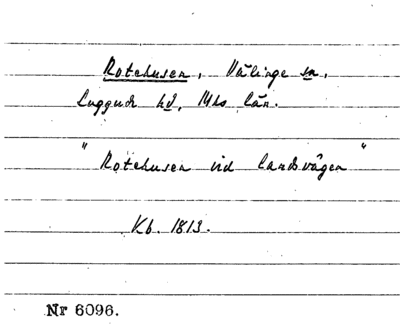 Rotehusen, Välinge sn,
Luggude hd, Mhs län.
"Rotehusen vid landsvägen"
Kb. 1813.
Nr 6096.